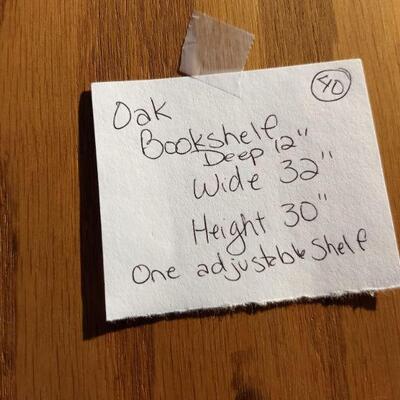 40
Oak
Bookshelf
Deep 12"
Wide 32"
Height 30"
One adjustable Shelf